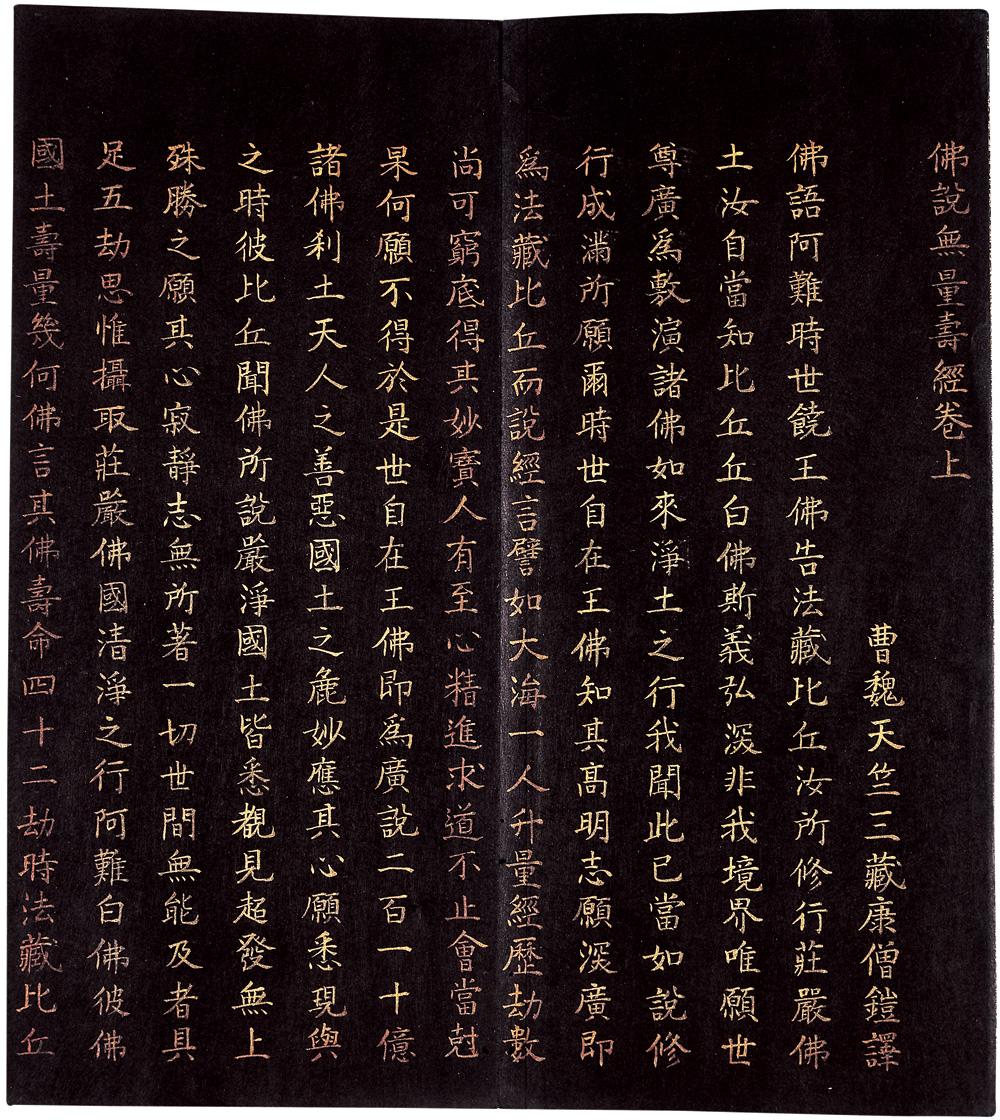 佛說無量壽經卷上
曹魏天竺三藏康僧鎧譯
佛語阿難時世饒王佛告法藏比丘汝所修行莊嚴佛
土汝自當知比丘丘白佛斯義弘深非我境界唯願世
尊廣為敷演諸佛如來淨土之行我聞此已當如說修
行成滿所願爾時世自在王佛知其高明志願深廣即
為法藏比丘而說經言譬如大海一人升量經歷劫數
尚可窮底得其妙寶人有至心精進求道不止會當尅
果何願不得於是世自在王佛即為廣說二百一十億
諸佛剎土天人之善惡國土之麁妙應其心願悉現與
之時彼比丘聞佛所說嚴淨國土皆悉覩見起發無上
殊勝之願其心寂靜志無所著一切世間無能及者具
足五劫思惟攝取莊嚴佛國清淨之行阿難白佛彼佛
國土壽量幾何佛言其佛壽命四十二劫時法藏比丘